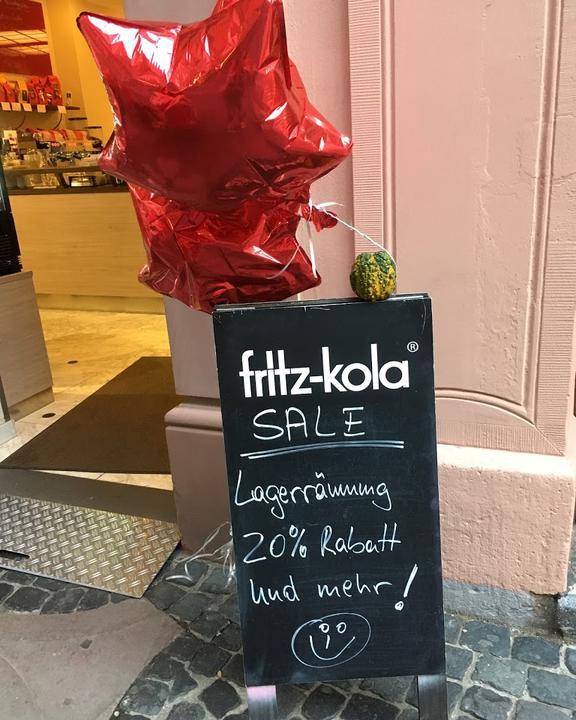 fritz-kola®
SALE
Lagerräumung
20% Rabatt
und mehr!